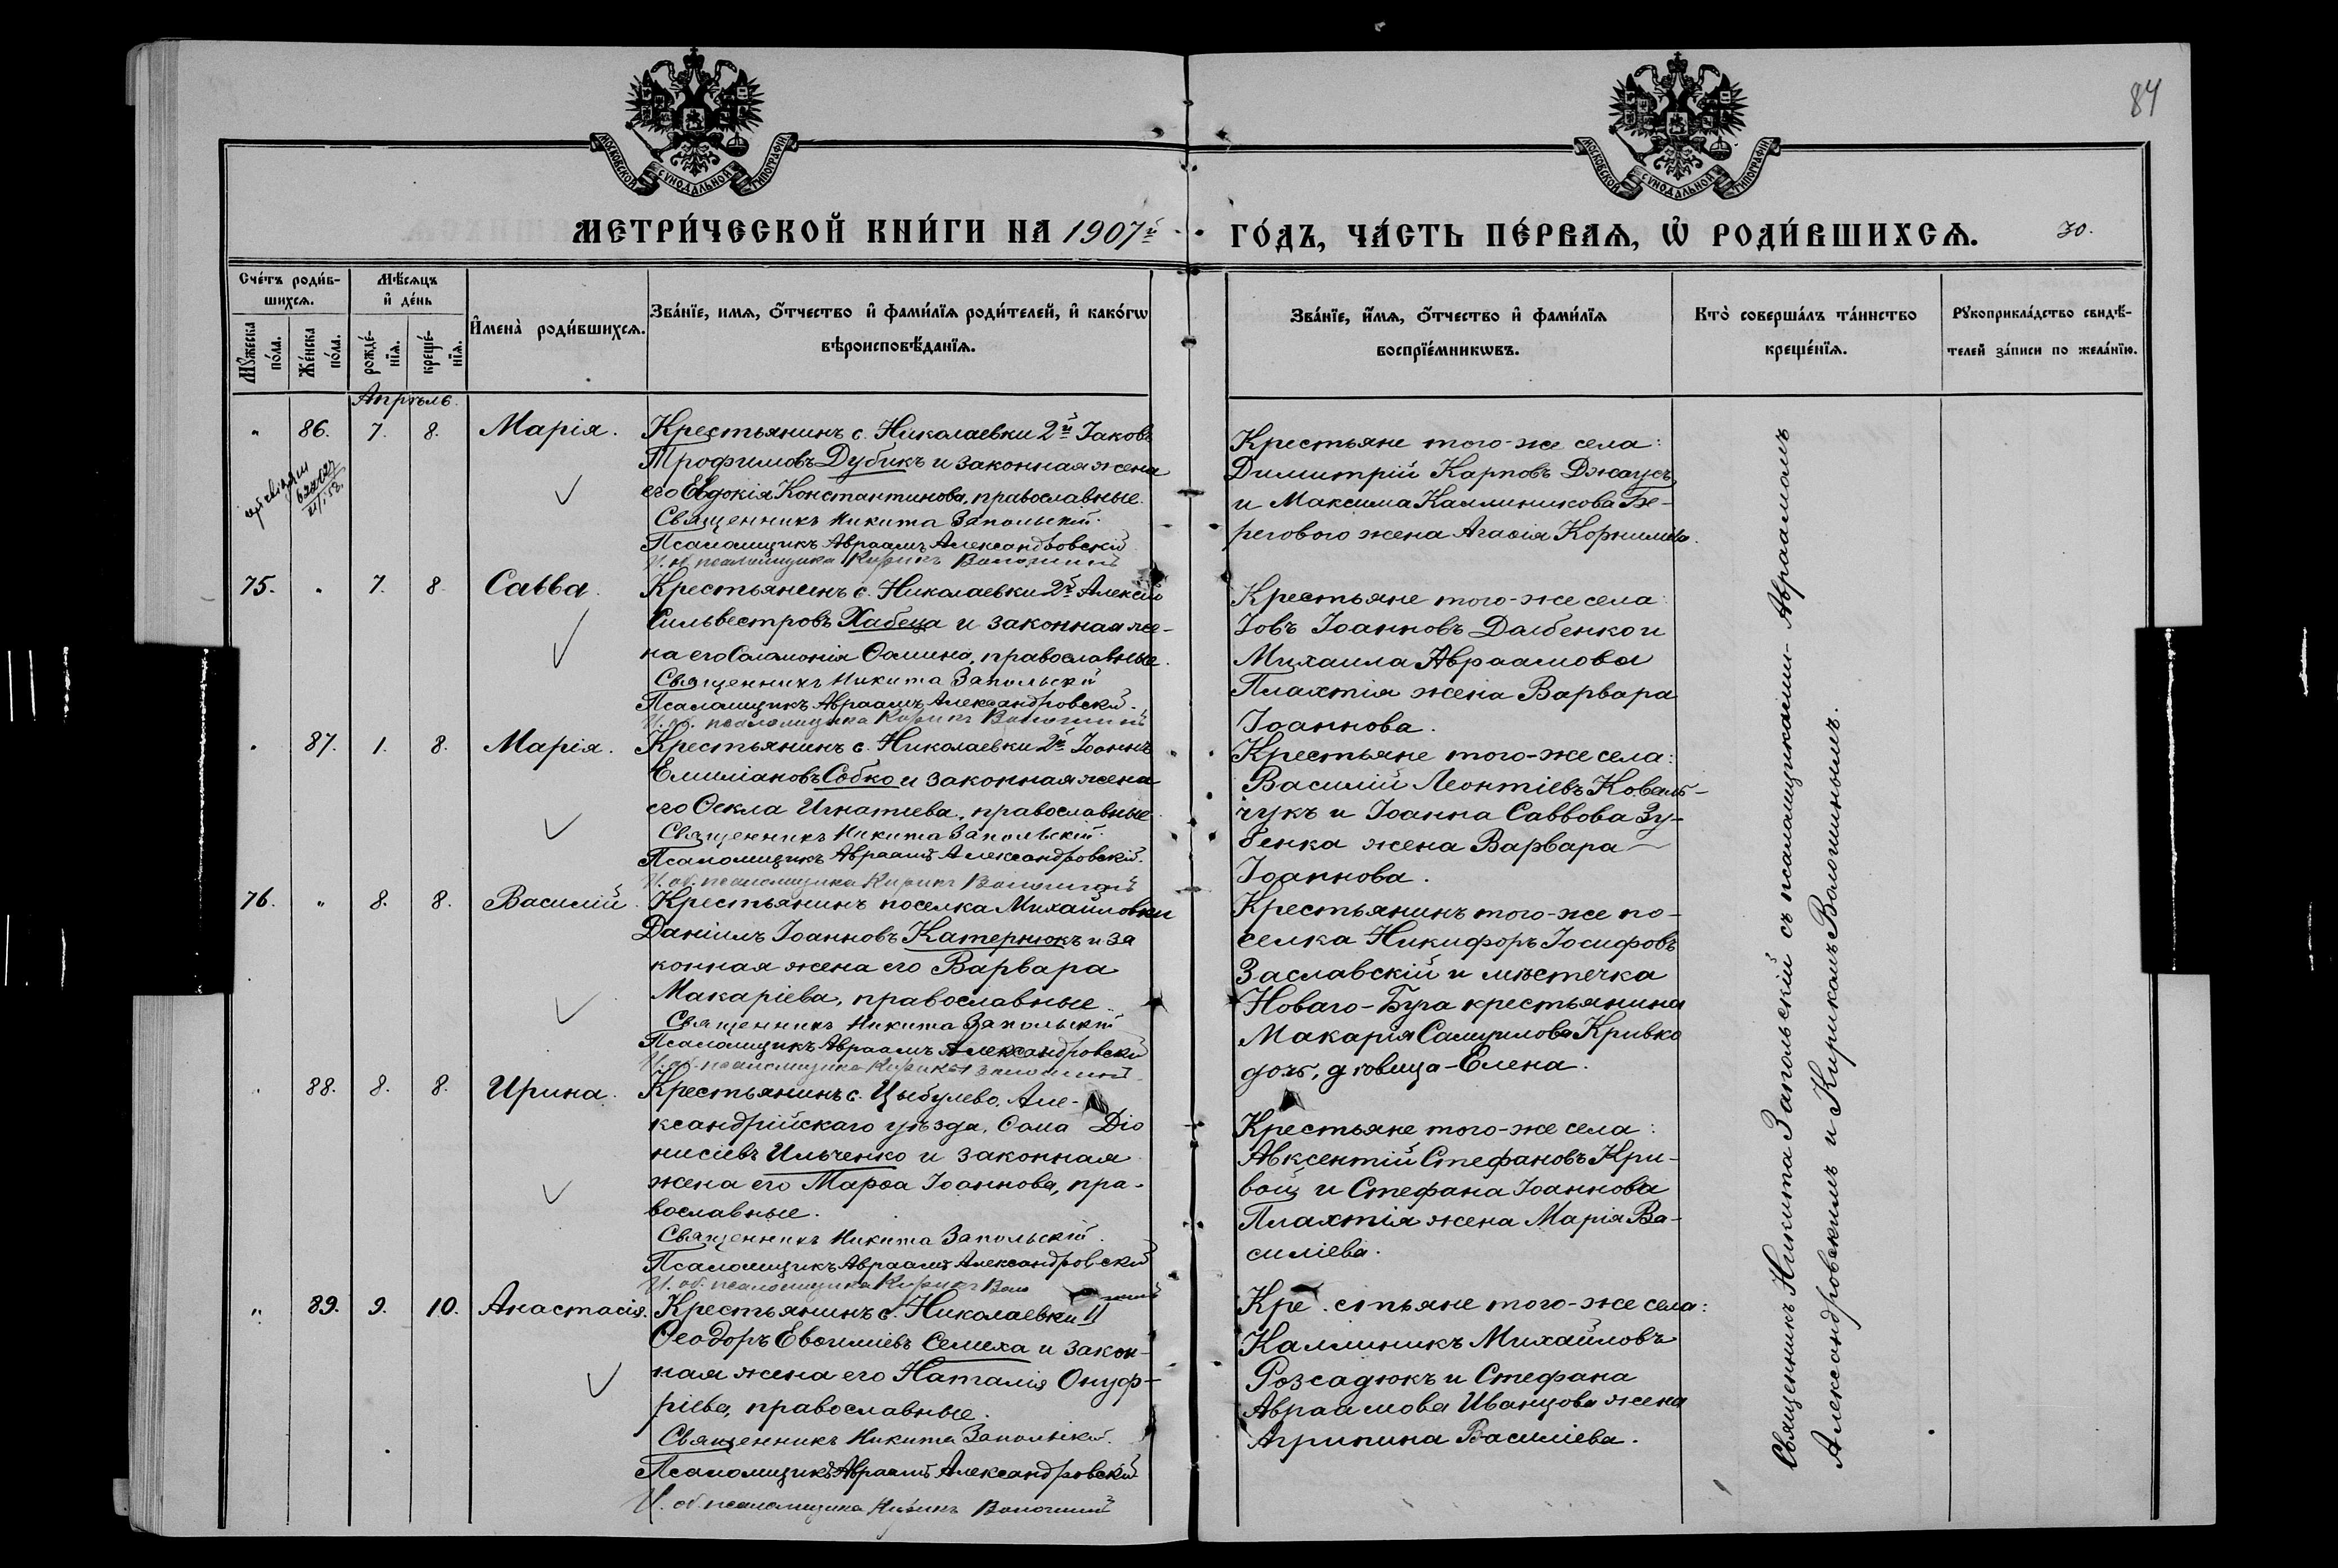 84
МОСКОВСКОЙ СѴНОДАЛЬНОЙ ТИПОГРАФІИ
МОСКОВСКОЙ СѴНОДАЛЬНОЙ ТИПОГРАФІИ
МЕТРИ́ЧЕСКОЙ КНИ́ГИ НА 1907й ГО́ДЪ, ЧА́СТЬ ПЕ́РВАѦ, Ѽ РОДИ́ВШИХСѦ. 30.
Сче́тъ роди́в-
шихсѧ.
Мꙋ́жеска по́ла.
Же́нска по́ла.
Мѣ́сѧцъ
и де́нь
рожде́-нїѧ.
креще́-нїѧ.
Имена̀ роди́вшихсѧ.
Зва́нїе, имѧ, о́тчество и фами́лїѧ роди́телей, и како́гѡ
вѣроисповѣ́данїѧ.
Зва́нїе, и́мѧ, о́тчество и фами́лїѧ
воспрїе́мникѡвъ.
Кто̀ соверша́лъ та́инство
креще́нїѧ.
Рꙋкоприкла́дство свидѣ́-
телей за́писи по жела́нїю.
Апрѣль
" 86. 7. 8. Марія. Крестьянинъ с. Николаевки 2й Іаковъ
Трофимовъ Дубикъ и законная жена
его Евдокія Константинова, православные.
Священникъ Никита Запольскій.
Псаломщикъ Авраамъ Александровскій
И. об. псаломщика Кирикъ Волошинъ
Крестьяне того-же села:
Димитрій Карповъ Джаусъ
и Максима Каллиникова Бе-
регового жена Агаѳія Корниліева.
75. " 7. 8. Савва. Крестьянинъ с. Николаевки 2й Алексій
Сильвестровъ Хабеца и законная же-
на его Саламонія Ѳомина, православные.
Священникъ Никита Запольскій
Псаломщикъ Авраамъ Александровскій.
И. об. псаломщика Кирикъ Волошинъ
Крестьяне того-же села:
Іовъ Іоанновъ Далбенко и
Михаила Авраамова
Плахтія жена Варвара
Іоаннова.
" 87. 1. 8. Марія. Крестьянинъ с. Николаевки 2й Іоаннъ
Емиліановъ Собко и законная жена
его Ѳекла Игнатиева, православные
Священникъ Никита Запольскій.
Псаломщикъ Авраамъ Александровскій.
И. об. псаломщика Кирикъ Волошинъ
Крестьяне того-же села:
Василій Леонтіевъ Коваль-
чукъ и Іоанна Саввова Зу-
бенка жена Варвара
Іоаннова.
76. " 8. 8. Василій. Крестьянинъ поселка Михайловки
Даніилъ Іоанновъ Катернюкъ и за
конная жена его Варвара
Макаріева, православные.
Священникъ Никита Запольскій
Псаломщикъ Авраамъ Александровскій
И. об. псаломщика Кирикъ Волошинъ
Крестьянинъ того-же по-
селка Никифоръ Іосифовъ
Заславскій и мѣстечка
Новаго-Буга крестьянина
Макарія Самуилова Кривко
дочь, дѣвица-Елена.
" 88. 8. 8. Ирина. Крестьянинъ с. Цыбулево, Але-
ксандрійскаго уѣзда, Ѳома Діо
нисіевъ Ильченко и законная
жена его Марѳа Іоаннова, пра-
вославные.
Священникъ Никита Запольскій.
Псаломщикъ Авраамъ Александровскій
И. об. псаломщика Кирикъ
Крестьяне того-же села:
Авксентій Стефановъ Кри-
вой и Стефана Іоаннова
Плахтія жена Марія Ва-
силіева.
" 89. 9. 10. Анастасія. Крестьянинъ с. Николаевки II
Ѳеодоръ Евѳиміевъ Семеха и закон-
ная жена его Наталія Онуф-
ріева, православные.
Священникъ Никита Запольскій.
Псаломщикъ Авраамъ Александровскій
И. об. псаломщика Кирикъ Волошинъ
Крестьяне того-же села:
Каллиникъ Михайловъ
Розсадюкъ и Стефана
Авраамова Иванцова жена
Агрипина Василіева.
Священникъ Никита Запольскій съ псаломщиками-Авраамомъ
Александровскимъ и Кирикомъ Волошинымъ.